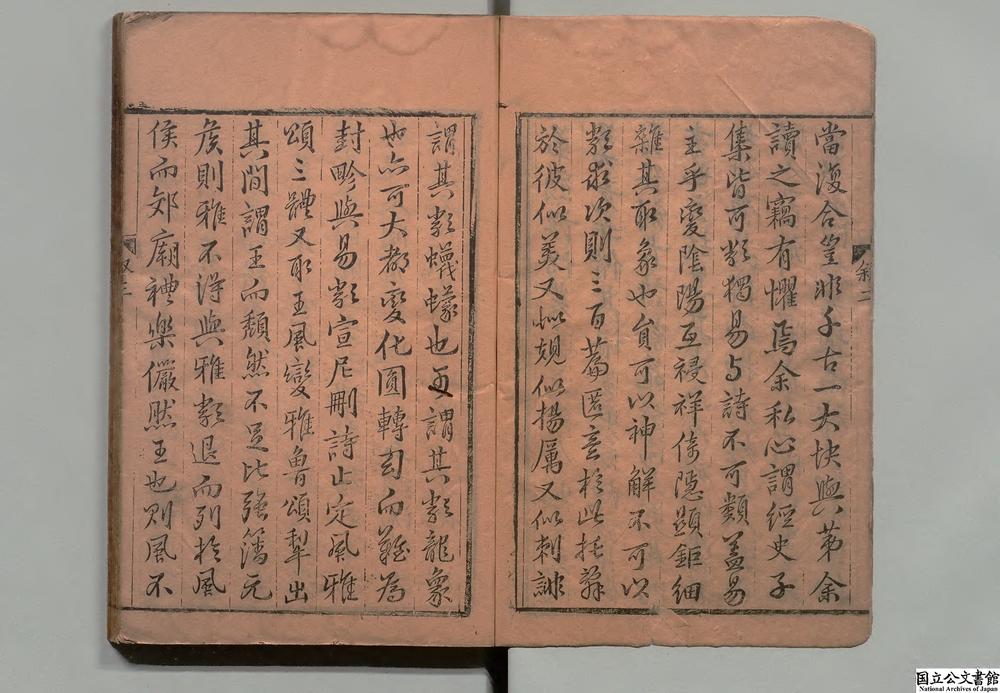 當復合豈非千古一大快與第余
讀之竊有懼焉余私心謂經史子
集皆可類獨易与詩不可類蓋易
主乎變陰陽互祲祥倚隱顯鉅細
雜其取象也貟可以神解不可以
類求次則三百篇匿意於此托辭
於彼似美又似規似揚厲又似刺誹
叙二
謂其類蠛蠓也可謂其類龍象
也亦可大都變化圓轉而難為
封畛與易類宣尼刪詩止定風雅
頌三體又取王風變雅魯頌犁出
其間謂王而頹然不足比強藩元
侯則雅不得與雅類退而列於風
侯而郊廟禮樂儼然王也則風不
叙三
国立公文書館
National Archives of Japan